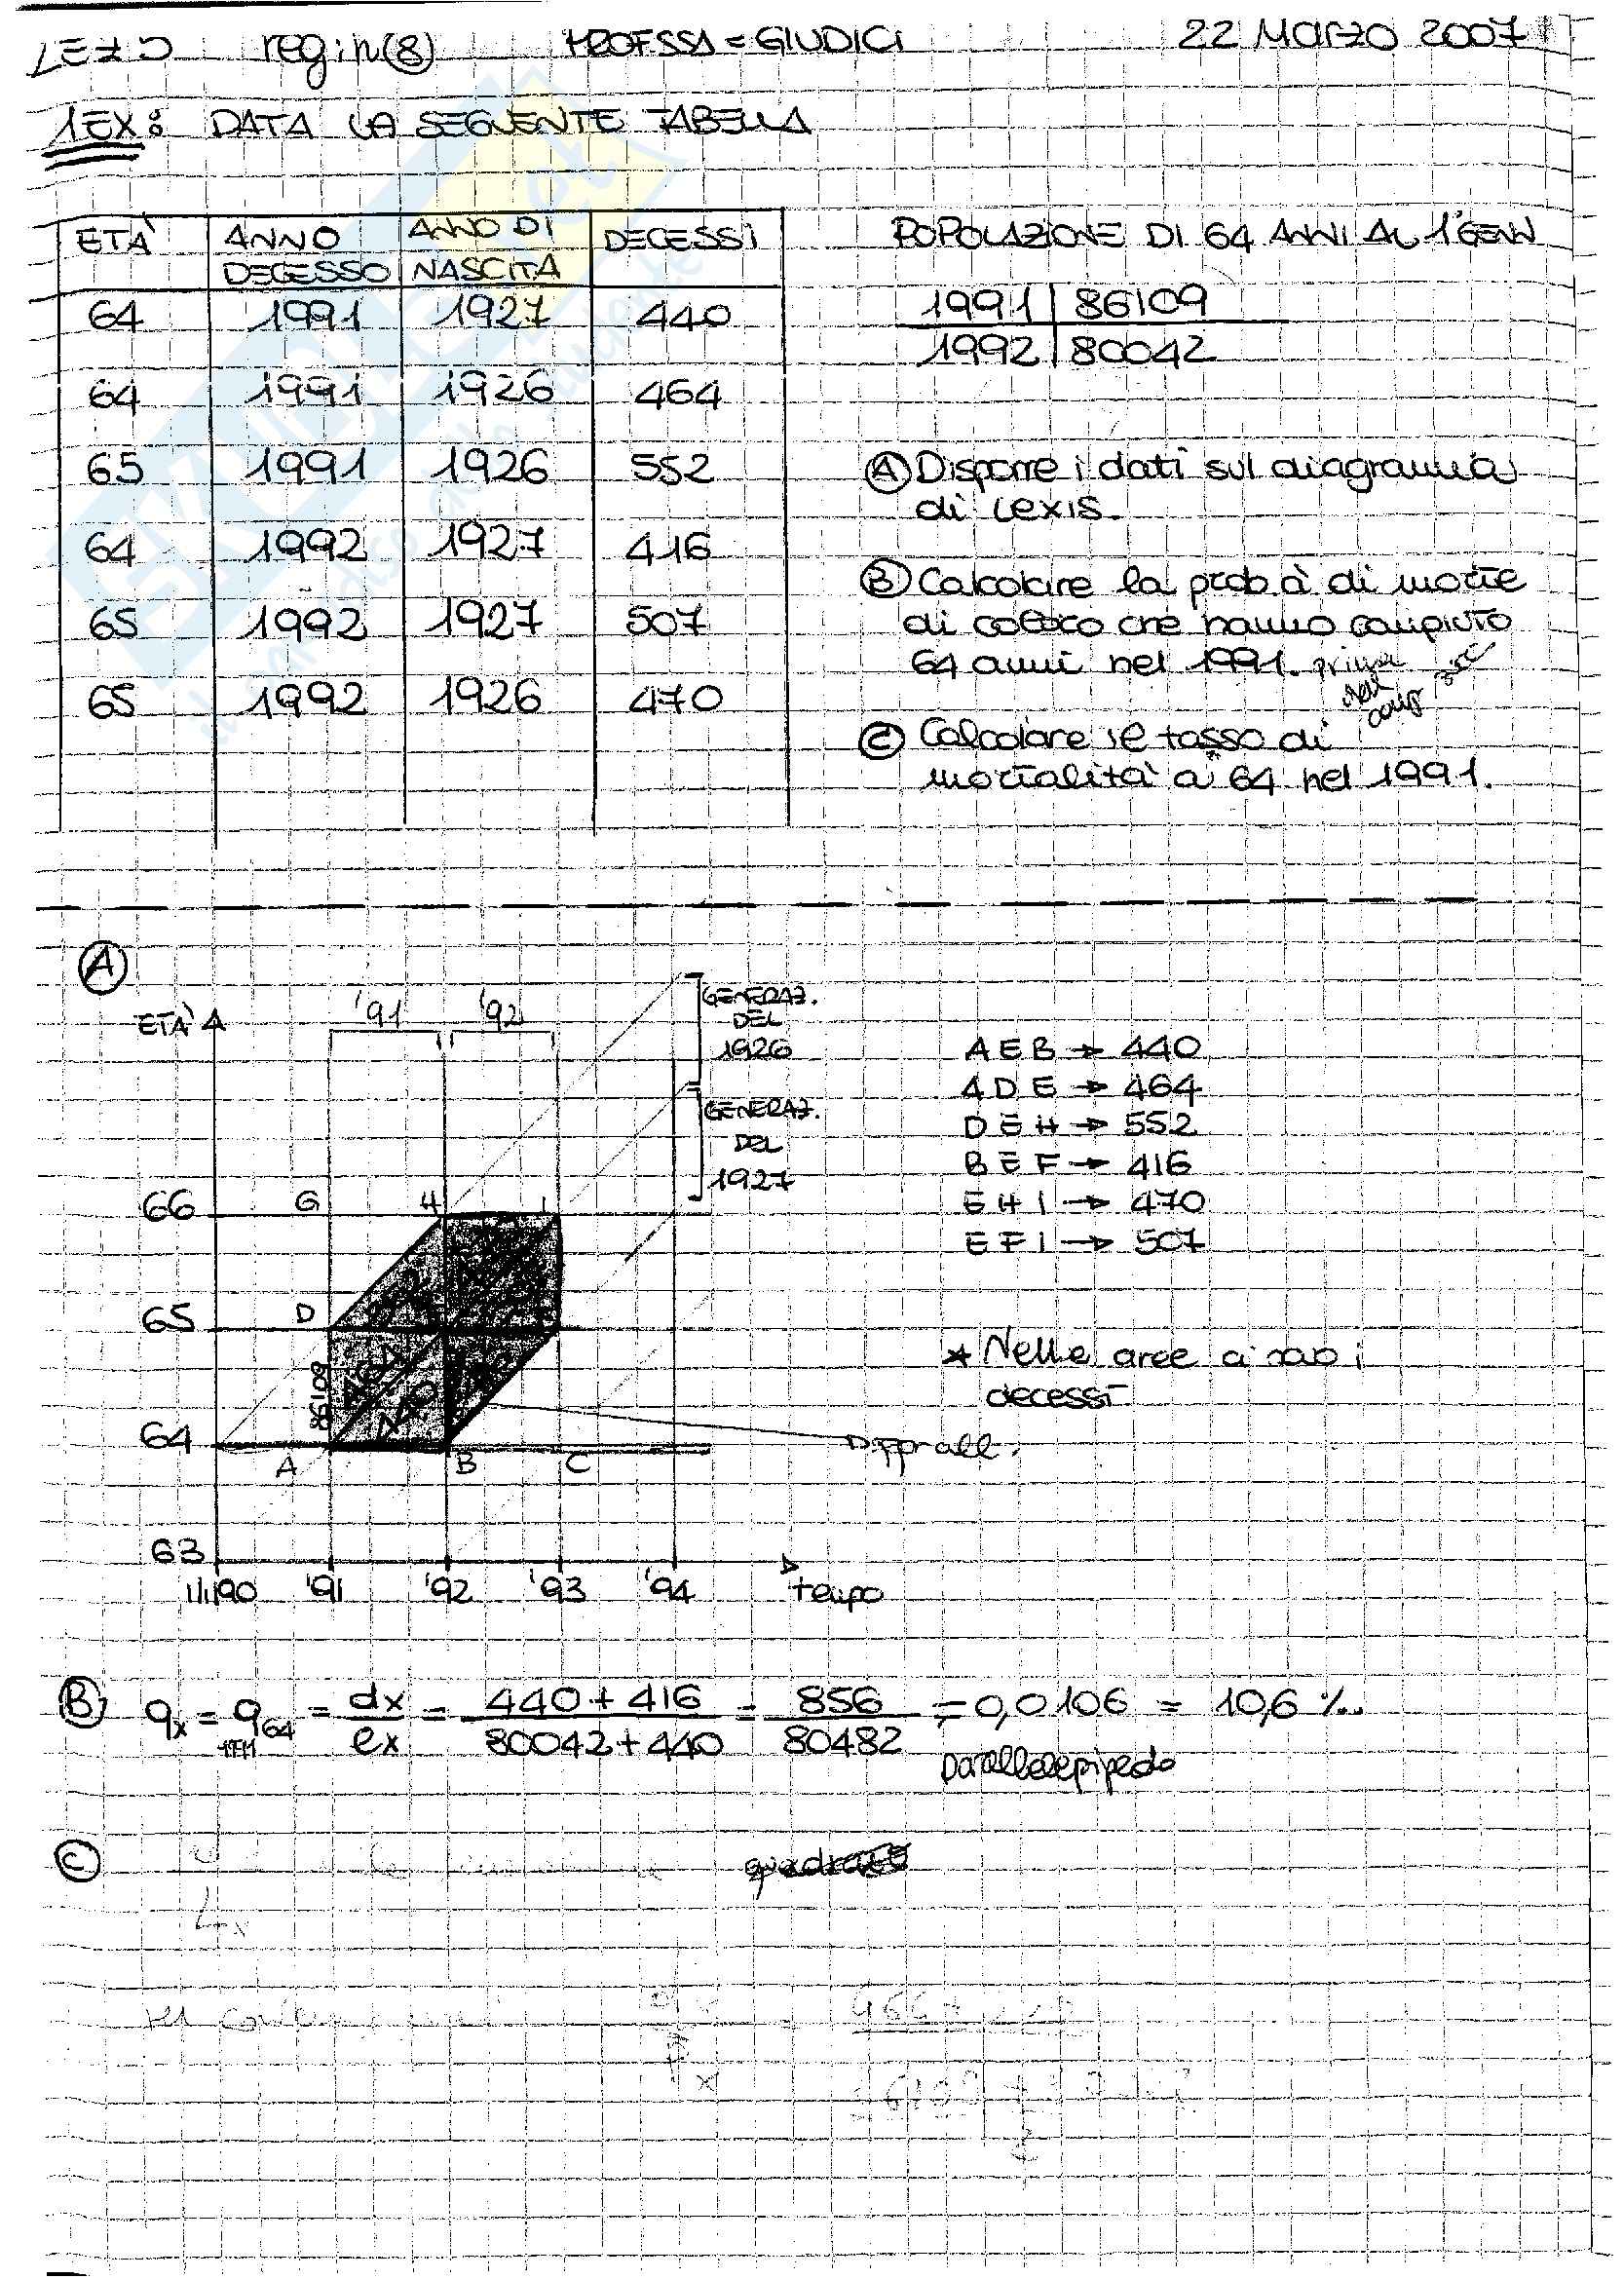 regin(8) PROFSSA = GIUDICI 22 MARZO 2007
1EX: DATA LA SEGUENTE TABELLA
ETÀ ANNO DECESSO ANNO DI NASCITA DECESSI
64 1991 1927 440
64 1991 1926 464
65 1991 1926 552
64 1992 1927 416
65 1992 1927 507
65 1992 1926 470
POPOLAZIONE DI 64 ANNI AL 1°GENN
1991 86109
1992 80042
A Disporre i dati sul diagramma
di Lexis.
B Calcolare la prob à di morte
di coloro che hanno compiuto
64 anni nel 1991. prima
C Calcolare il tasso di
mortalità a 64 nel 1991.
A
ETÀ '91 '92
GENERAZ.
DEL
1926
GENERAZ.
DEL
1927
66 G H I
65 D
86109
64 A B C
63
1/1/90 '91 '92 '93 '94 tempo
AEB → 440
ADE → 464
DEH → 552
BEF → 416
EHI → 470
EFI → 507
* Nelle aree ci sono i
decessi
B qx = q64 = dx/ex = 440+416/80042+440 = 856/80482 = 0,0106 = 10,6 ‰
parallelepipedo
C quadrato
Lx